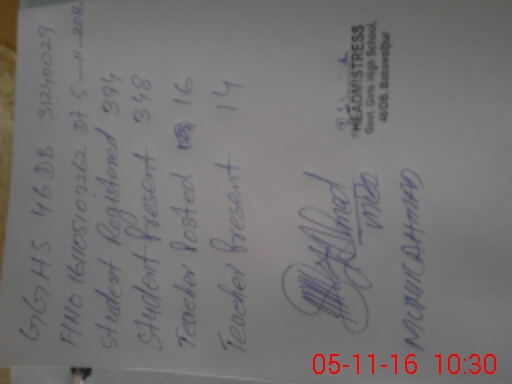 GGHS 46DB 31240029
FINO 161105107262 Dt 5-11-2016
Student Registered 394
Student Present 348
Teacher Posted 16
Teacher Present 14
HEADMISTRESS
Govt. Girls High School,
46/DB, Bahawalpur
MUNIR AHMAD
05-11-16 10:30